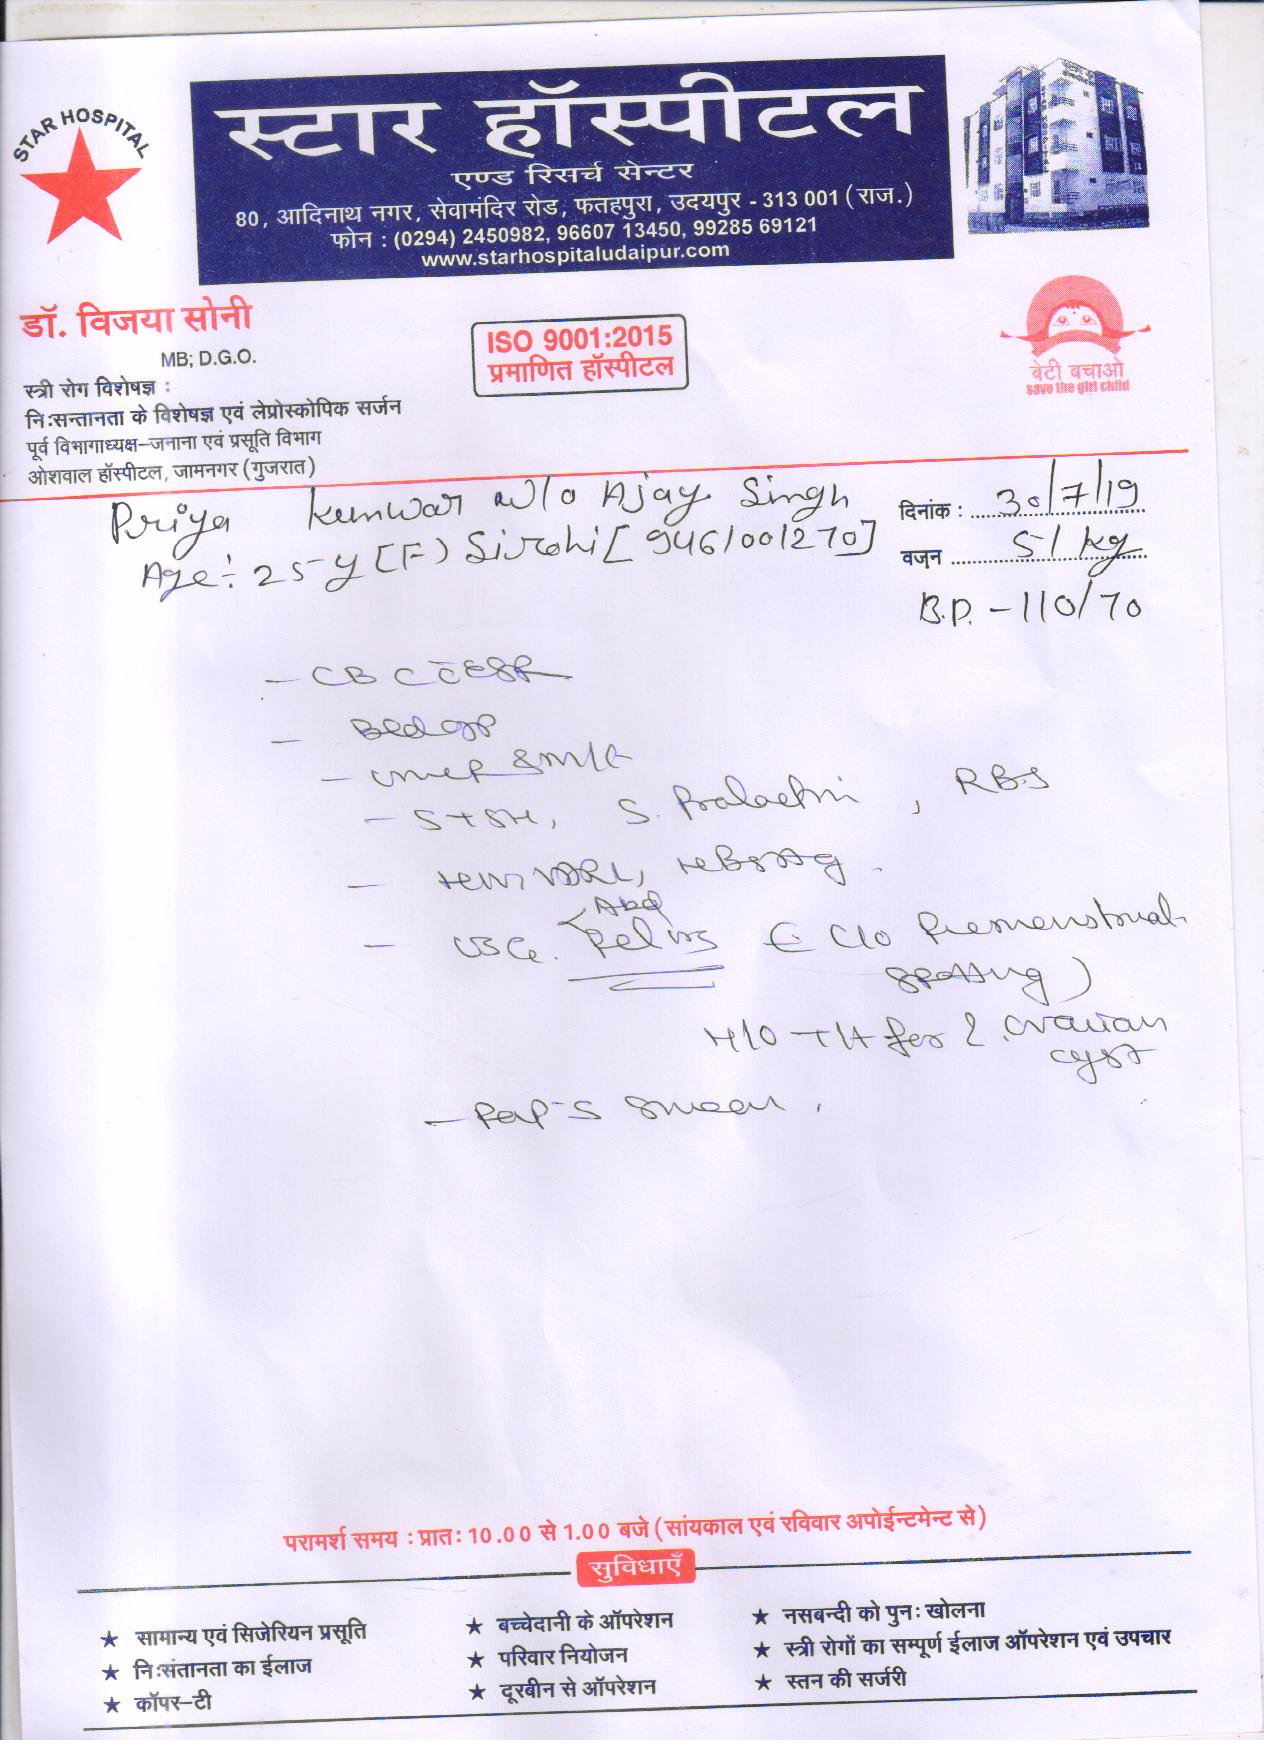 STAR HOSPITAL
स्टार हॉस्पीटल
एण्ड रिसर्च सेन्टर
80, आदिनाथ नगर, सेवामंदिर रोड, फतहपुरा, उदयपुर - 313 001 (राज.)
फोन : (0294) 2450982, 96607 13450, 99285 69121
www.starhospitaludaipur.com
डॉ. विजया सोनी
MB; D.G.O.
स्त्री रोग विशेषज्ञ :
निःसन्तानता के विशेषज्ञ एवं लेप्रोस्कोपिक सर्जन
पूर्व विभागाध्यक्ष–जनाना एवं प्रसूति विभाग
ओशवाल हॉस्पीटल, जामनगर (गुजरात)
ISO 9001:2015
प्रमाणित हॉस्पीटल
बेटी बचाओ
save the girl child
Priya Kunwar w/o Ajay Singh
Age:- 25-y [F] Sirohi [9461001270]
दिनांक : 30/7/19
वजन 51 kg
B.P. - 110/70
- CBC c̄ ESR
- Bld gp
- S TSH, S. Prolactin, RBS
- HIV, VDRL, HBsAg.
Abd
- USG. Pelvis C/O Premenstrual
spotting)
H/O T/t for ovarian
cyst
- Pap's smear.
परामर्श समय : प्रातः 10.00 से 1.00 बजे (सांयकाल एवं रविवार अपोईन्टमेन्ट से)
सुविधाएँ
★ सामान्य एवं सिजेरियन प्रसूति
★ निःसंतानता का ईलाज
★ कॉपर–टी
★ बच्चेदानी के ऑपरेशन
★ परिवार नियोजन
★ दूरबीन से ऑपरेशन
★ नसबन्दी को पुनः खोलना
★ स्त्री रोगों का सम्पूर्ण ईलाज ऑपरेशन एवं उपचार
★ स्तन की सर्जरी